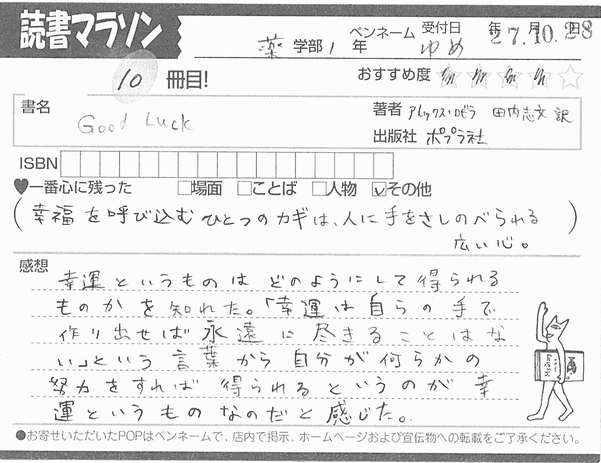 読書マラソン
薬 学部 1 年 ペンネーム ゆめ 受付日 27年10月28日
10 冊目! おすすめ度 ★★★★☆
書名 Good Luck
著者 アレックス・ロビラ 田内志文 訳
出版社 ポプラ社
ISBN
♥一番心に残った □場面 □ことば □人物 ☑その他
(幸福を呼び込むひとつのカギは、人に手をさしのべられる
広い心。)
感想
幸運というものはどのようにして得られる
ものかを知れた。「幸運は自らの手で
作り出せば永遠に尽きることはな
い」という言葉から自分が何らかの
努力をすれば得られるというのが幸
運というものなのだと感じた。
●お寄せいただいたPOPはペンネームで、店内で掲示、ホームページおよび宣伝物への転載をご了承ください。